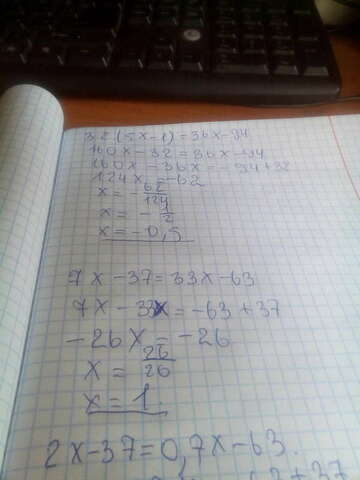 32(5x-1)=36x-94
160x-32=36x-94
160x-36x=-94+32
124x=-62
x=-62/124
x=-1/2
x=-0,5
7x-37=33x-63
7x-33x=-63+37
-26x=-26
x=26/26
x=1.
2x-37=0,7x-63.